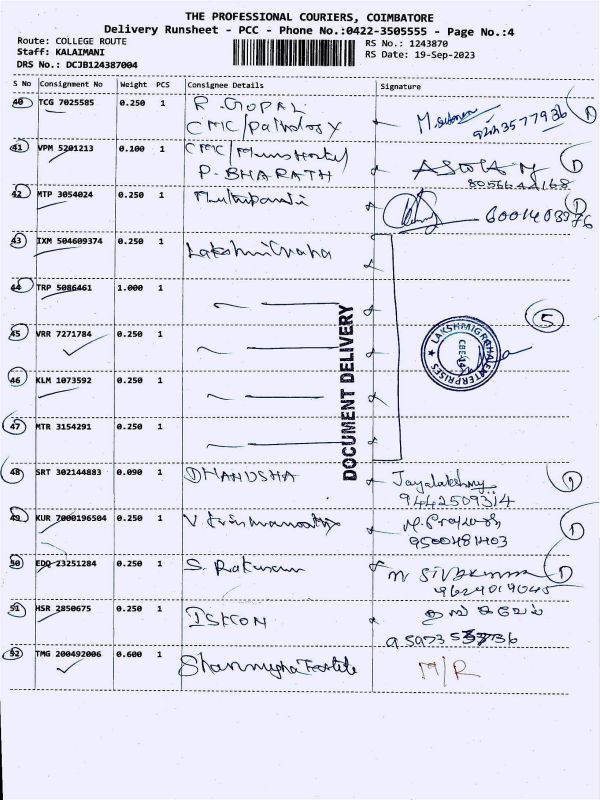 THE PROFESSIONAL COURIERS, COIMBATORE
Delivery Runsheet - PCC - Phone No.:0422-3505555 - Page No.:4
Route: COLLEGE ROUTE
Staff: KALAIMANI
DRS No.: DCJB124387004
RS No.: 1243870
RS Date: 19-Sep-2023
S No Consignment No Weight PCS Consignee Details Signature
40 TCG 7025585 0.250 1 R. GOPAL
CMC/Pathology
41 VPM 5201213 0.100 1 CMC/Mens Hostel
P. BHARATH
42 MTP 3054024 0.250 1 6001403376
43 IXM 504609374 0.250 1
44 TRP 5086461 1.000 1
45 VRR 7271784 0.250 1
46 KLM 1073592 0.250 1
47 MTR 3154291 0.250 1
DOCUMENT DELIVERY
5
48 SRT 302144883 0.090 1 DHANUSHA Jayalakshmy
9442509314
49 KUR 7000196504 0.250 1
9500481403
50 EDQ 23251284 0.250 1 S.
9629019045
51 HSR 2850675 0.250 1 ISKCON
52 TMG 200492006 0.600 1 Shanmugha Textile M/R